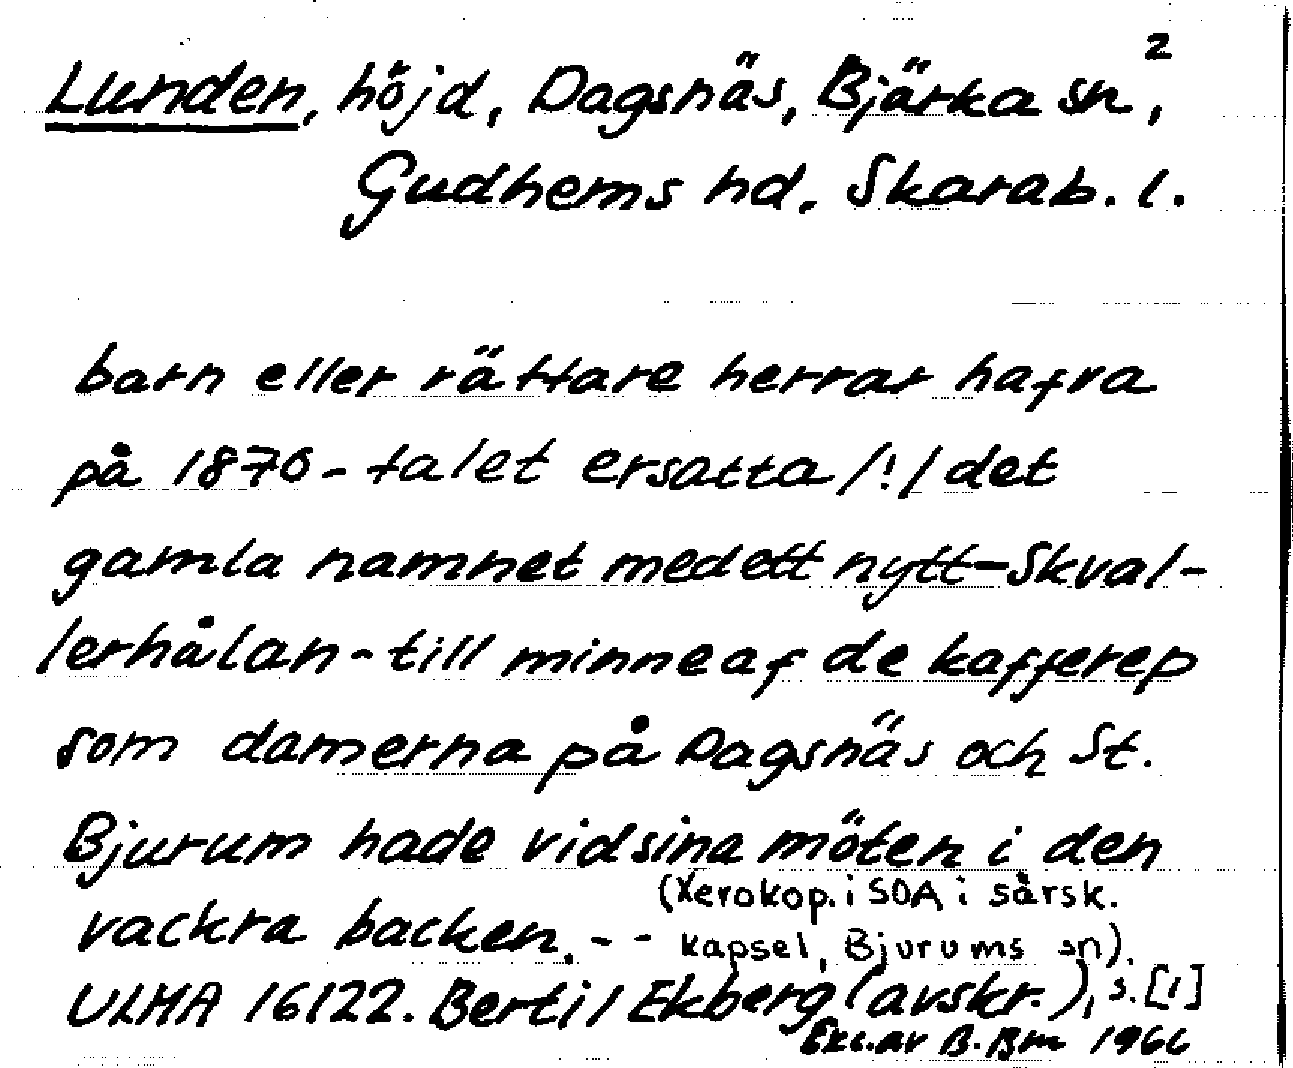 2
Lunden, höjd, Dagsnäs, Bjärka sn,
Gudhems hd. Skarab. l.
barn eller rättare herrar hafva
på 1870-talet ersatta /!/ det
gamla namnet med ett nytt-Skval-
lerhålan-till minne af de kafferep
som damerna på Dagsnäs och St.
Bjurum hade vid sina möten i den
vackra backen. - -
(Xerokop. i SOA i särsk.
kapsel, Bjurums sn).
ULMA 16122. Bertil Ekberg (avskr.), s. [1]
Exc. av B. Bm 1966